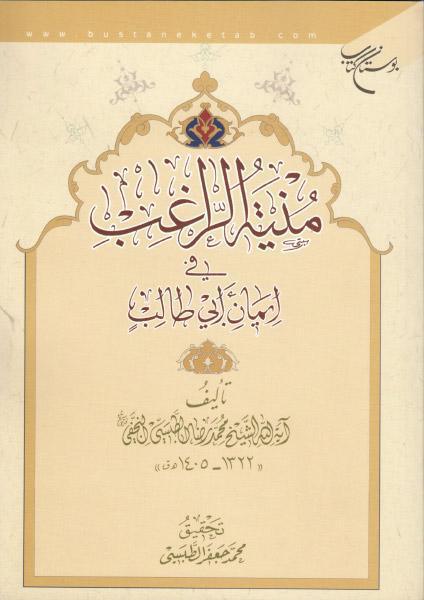 www.bustaneketab.com
بوستان کتاب
مُنْيَةُ الرَّاغِبِ
في
إيمَانِ أَبي طَالِبٍ
تأليفُ
آية الله الشيخ محمد رضا الطبسي النجفي
«١٣٢٢ - ١٤٠٥ ه‍ ق»
تحقيق
محمد جعفر الطبسي